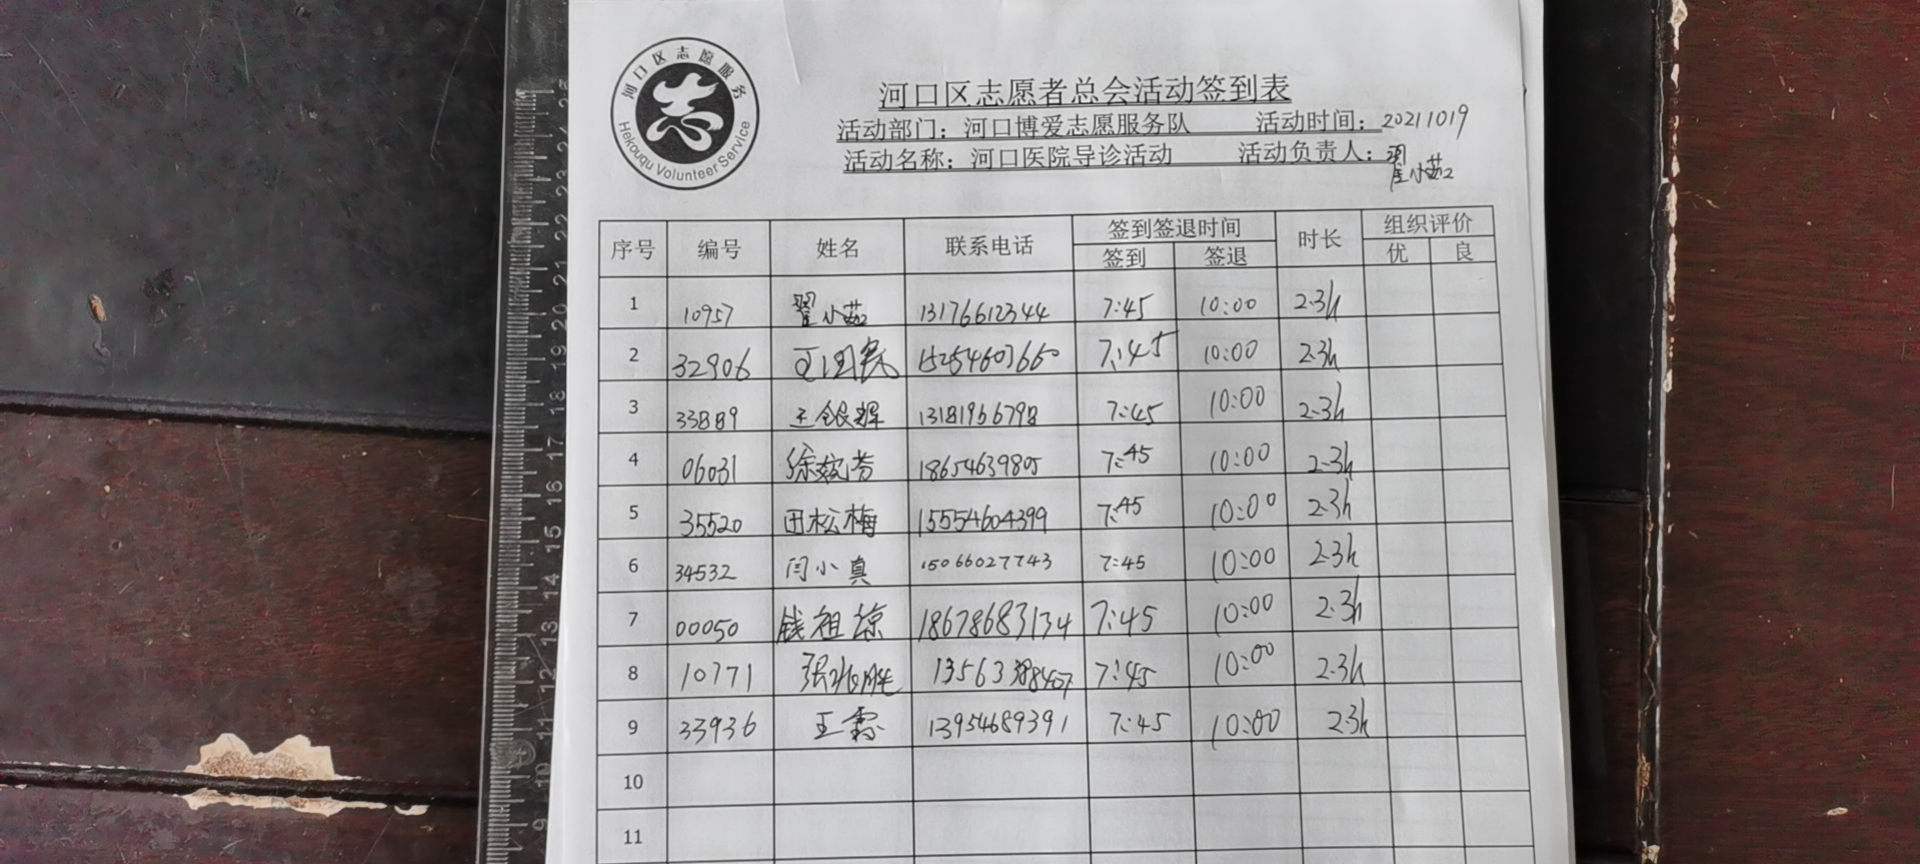 河口区志愿服务
Hekouqu Volunteer Service
河口区志愿者总会活动签到表
活动部门：河口博爱志愿服务队 活动时间：20211019
活动名称：河口医院导诊活动 活动负责人：翟小茹
序号 编号 姓名 联系电话 签到签退时间 时长 组织评价
签到 签退 优 良
1 10957 翟小茹 13176612344 7:45 10:00 2.3h
2 32906 15254603660 7:45 10:00 2.3h
3 33889 王银辉 13181966798 7:45 10:00 2.3h
4 06031 徐效芳 18654639805 7:45 10:00 2.3h
5 35520 田松梅 15554604399 7:45 10:00 2.3h
6 34532 闫小真 15066027743 7:45 10:00 2.3h
7 00050 钱祖琼 18678683134 7:45 10:00 2.3h
8 10771 张兆胜 7:45 10:00 2.3h
9 33936 王霞 13954689391 7:45 10:00 2.3h
10
11